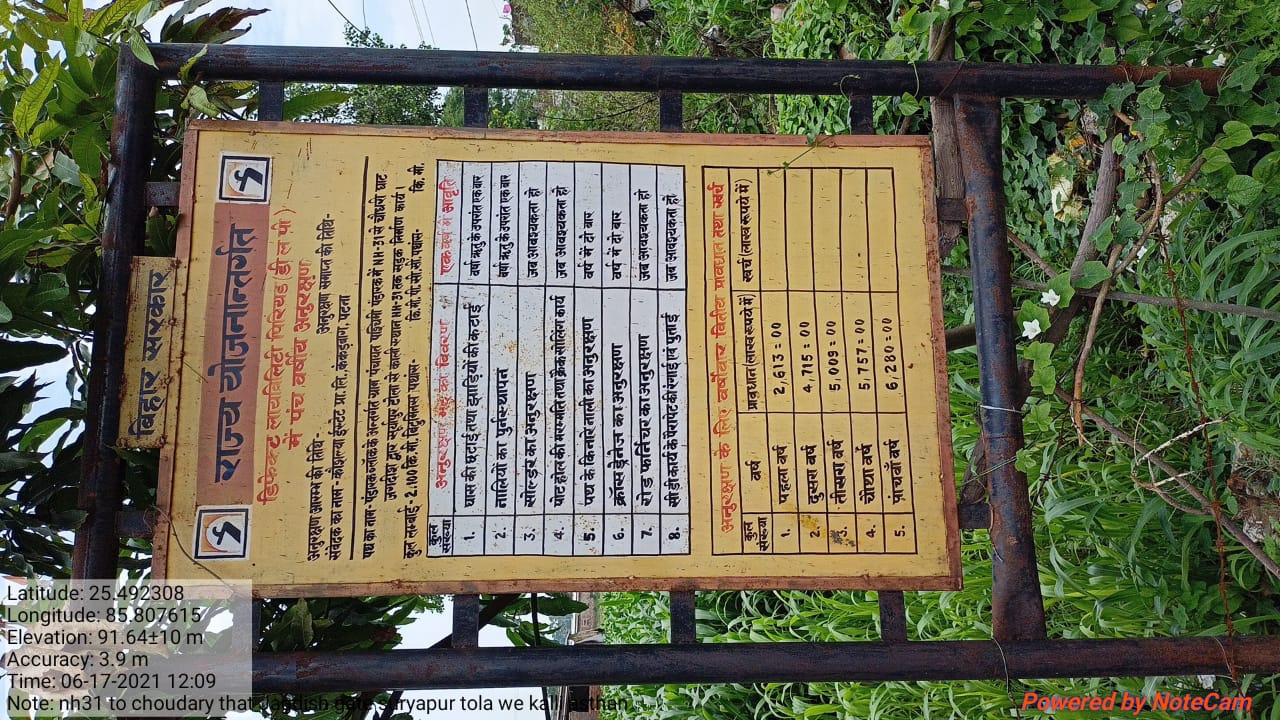 बिहार सरकार
राज्य योजनान्तर्गत
डिफेक्ट लायबिलिटी पिरियड (डी एल पी)
में पंच वर्षीय अनुरक्षण
अनुरक्षण आरम्भ की तिथि- अनुरक्षण समाप्त की तिथि-
संवेदक का नाम - कौशल्या ईस्टर्ट प्रा.लि., कंकड़बाग, पटना
पथ का नाम- पंडारक प्रखंड के अन्तर्गत ग्राम पंचायत पश्चिमी पंडारक में NH-31 से चौधरी घाट
जगदीश द्वार सूर्यापुर टोला से काली स्थान NH-31 तक सड़क निर्माण कार्य।
कुल लम्बाई- 2.100 कि.मी. बिटुमिनस पथांस- कि.मी. पी.सी.सी. पथांस- कि. मी.
कुल संख्या अनुरक्षण मद का विवरण एक वर्ष में आवृति
1. घास की छटाई तथा झाड़ियों की कटाई वर्षा ऋतु के उपरांत एक बार
2. नालियों का पुर्नस्थापन वर्षा ऋतु के उपरांत एक बार
3. सोल्डर का अनुरक्षण जब आवश्यकता हो
4. पॉट होल की मरम्मति तथा क्रैक सीलिंग कार्य जब आवश्यकता हो
5. पथ के किनारे नाली का अनुरक्षण वर्ष में दो बार
6. क्रॉस ड्रेनेज का अनुरक्षण वर्ष में दो बार
7. रोड फर्निचर का अनुरक्षण जब आवश्यकता हो
8. सी डी कार्य के पैरापेट की रंगाई एवं पुताई जब आवश्यकता हो
अनुरक्षण के लिए वर्षवार वित्तीय प्रावधान तथा खर्च
कुल संख्या वर्ष प्रावधान (लाख रूपये में) खर्च (लाख रूपये में)
1. पहला वर्ष 2,613=00
2. दुसरा वर्ष 4,715=00
3. तीसरा वर्ष 5,009=00
4. चौथा वर्ष 5,757=00
5. पांचवाँ वर्ष 6,280=00
Latitude: 25.492308
Longitude: 85.807615
Elevation: 91.64±10 m
Accuracy: 3.9 m
Time: 06-17-2021 12:09
Note: nh31 to choudary that Jagdish gate suryapur tola we kali asthan
Powered by NoteCam